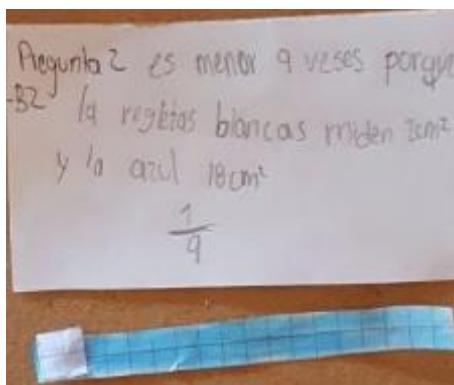 Pregunta 2 es menor 9 veses porque
-B2 la regletas blancas miden 2cm²
y la azul 18cm²
1
9